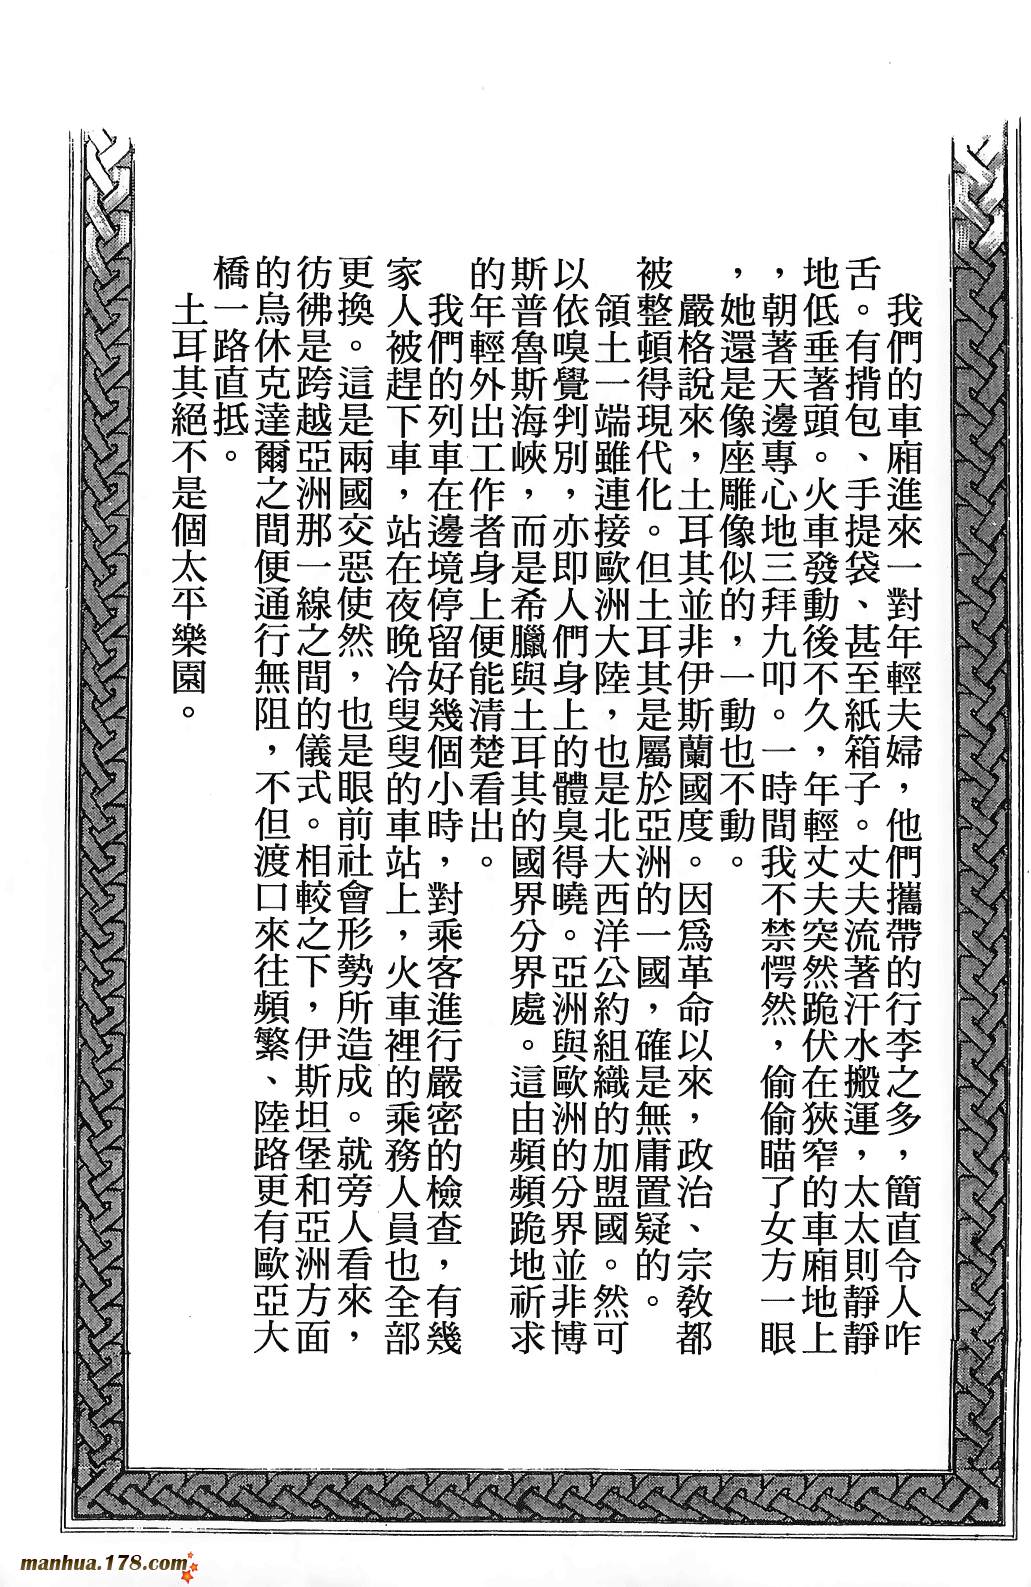 我們的車廂進來一對年輕夫婦，他們攜帶的行李之多，簡直令人咋
舌。有揹包、手提袋、甚至紙箱子。丈夫流著汗水搬運，太太則靜靜
地低垂著頭。火車發動後不久，年輕丈夫突然跪伏在狹窄的車廂地上
，朝著天邊專心地三拜九叩。一時間我不禁愕然，偷偷瞄了女方一眼
，她還是像座雕像似的，一動也不動。
嚴格說來，土耳其並非伊斯蘭國度。因為革命以來，政治、宗教都
被整頓得現代化。但土耳其是屬於亞洲的一國，確是無庸置疑的。
領土一端雖連接歐洲大陸，也是北大西洋公約組織的加盟國。然可
以依嗅覺判別，亦即人們身上的體臭得曉。亞洲與歐洲的分界並非博
斯普魯斯海峽，而是希臘與土耳其的國界分界處。這由頻頻跪地祈求
的年輕外出工作者身上便能清楚看出。
我們的列車在邊境停留好幾個小時，對乘客進行嚴密的檢查，有幾
家人被趕下車，站在夜晚冷叟叟的車站上，火車裡的乘務人員也全部
更換。這是兩國交惡使然，也是眼前社會形勢所造成。就旁人看來，
彷彿是跨越亞洲那一線之間的儀式。相較之下，伊斯坦堡和亞洲方面
的烏休克達爾之間便通行無阻，不但渡口來往頻繁、陸路更有歐亞大
橋一路直抵。
土耳其絕不是個太平樂園。
manhua.178.com